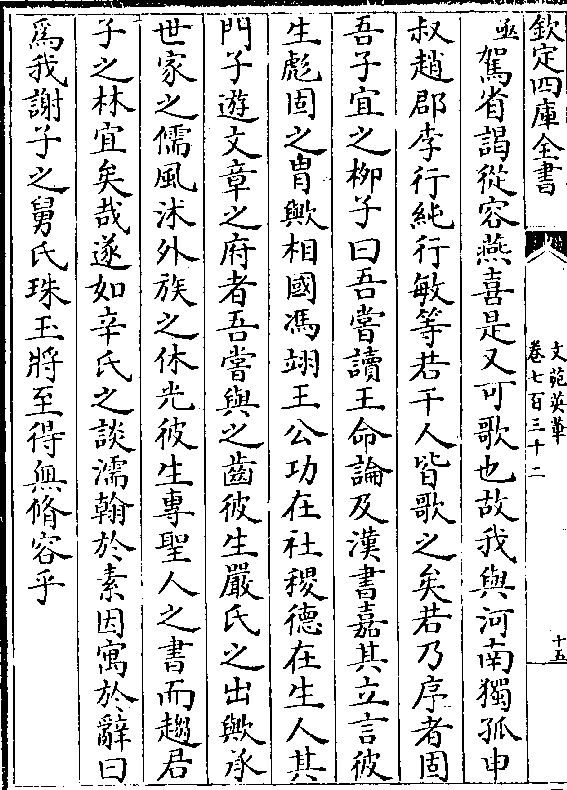 欽定四庫全書
文苑英華
卷七百三十二
十五
亟駕省謁從容燕喜是又可歌也故我與河南獨孤申
叔趙郡李行純行敏等若干人皆歌之矣若乃序者固
吾子宜之柳子曰吾嘗讀王命論及漢書嘉其立言彼
生彪固之胄歟相國馮翊王公功在社稷德在生人其
門子遊文章之府者吾嘗與之齒彼生嚴氏之出歟承
世家之儒風沭外族之休光彼生專聖人之書而趨君
子之林宜矣哉遂如辛氏之談濡翰於素因寓於辭曰
爲我謝子之舅氏珠玉將至得無脩容乎